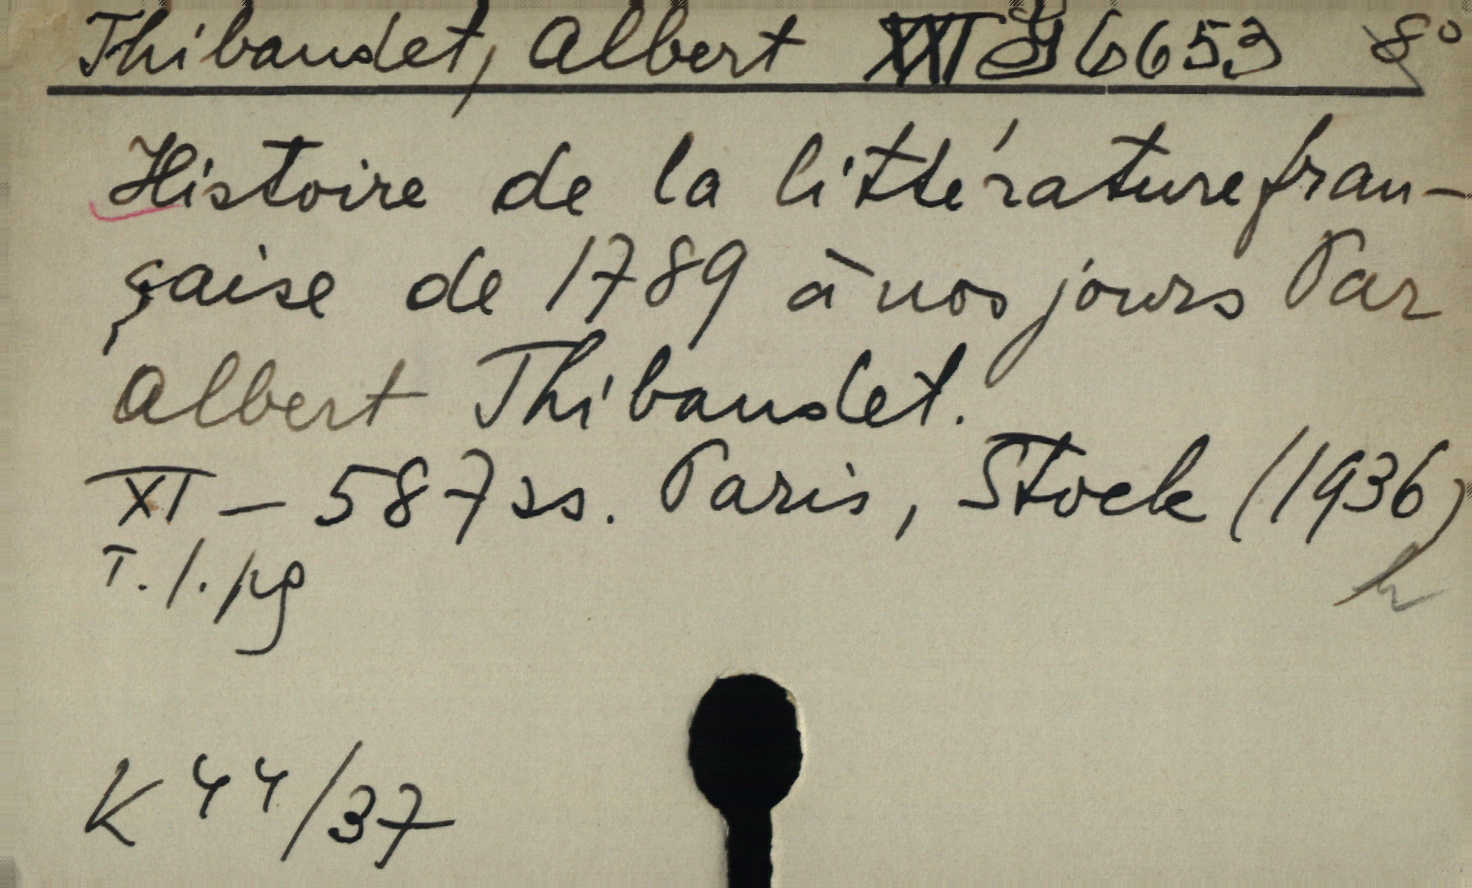 Thibaudet, Albert XXI G 6653 8°
Histoire de la littérature fran-
çaise de 1789 à nos jours Par
Albert Thibaudet.
XI – 587 ss. Paris, Stock (1936)
T. l. pg
K 44/37